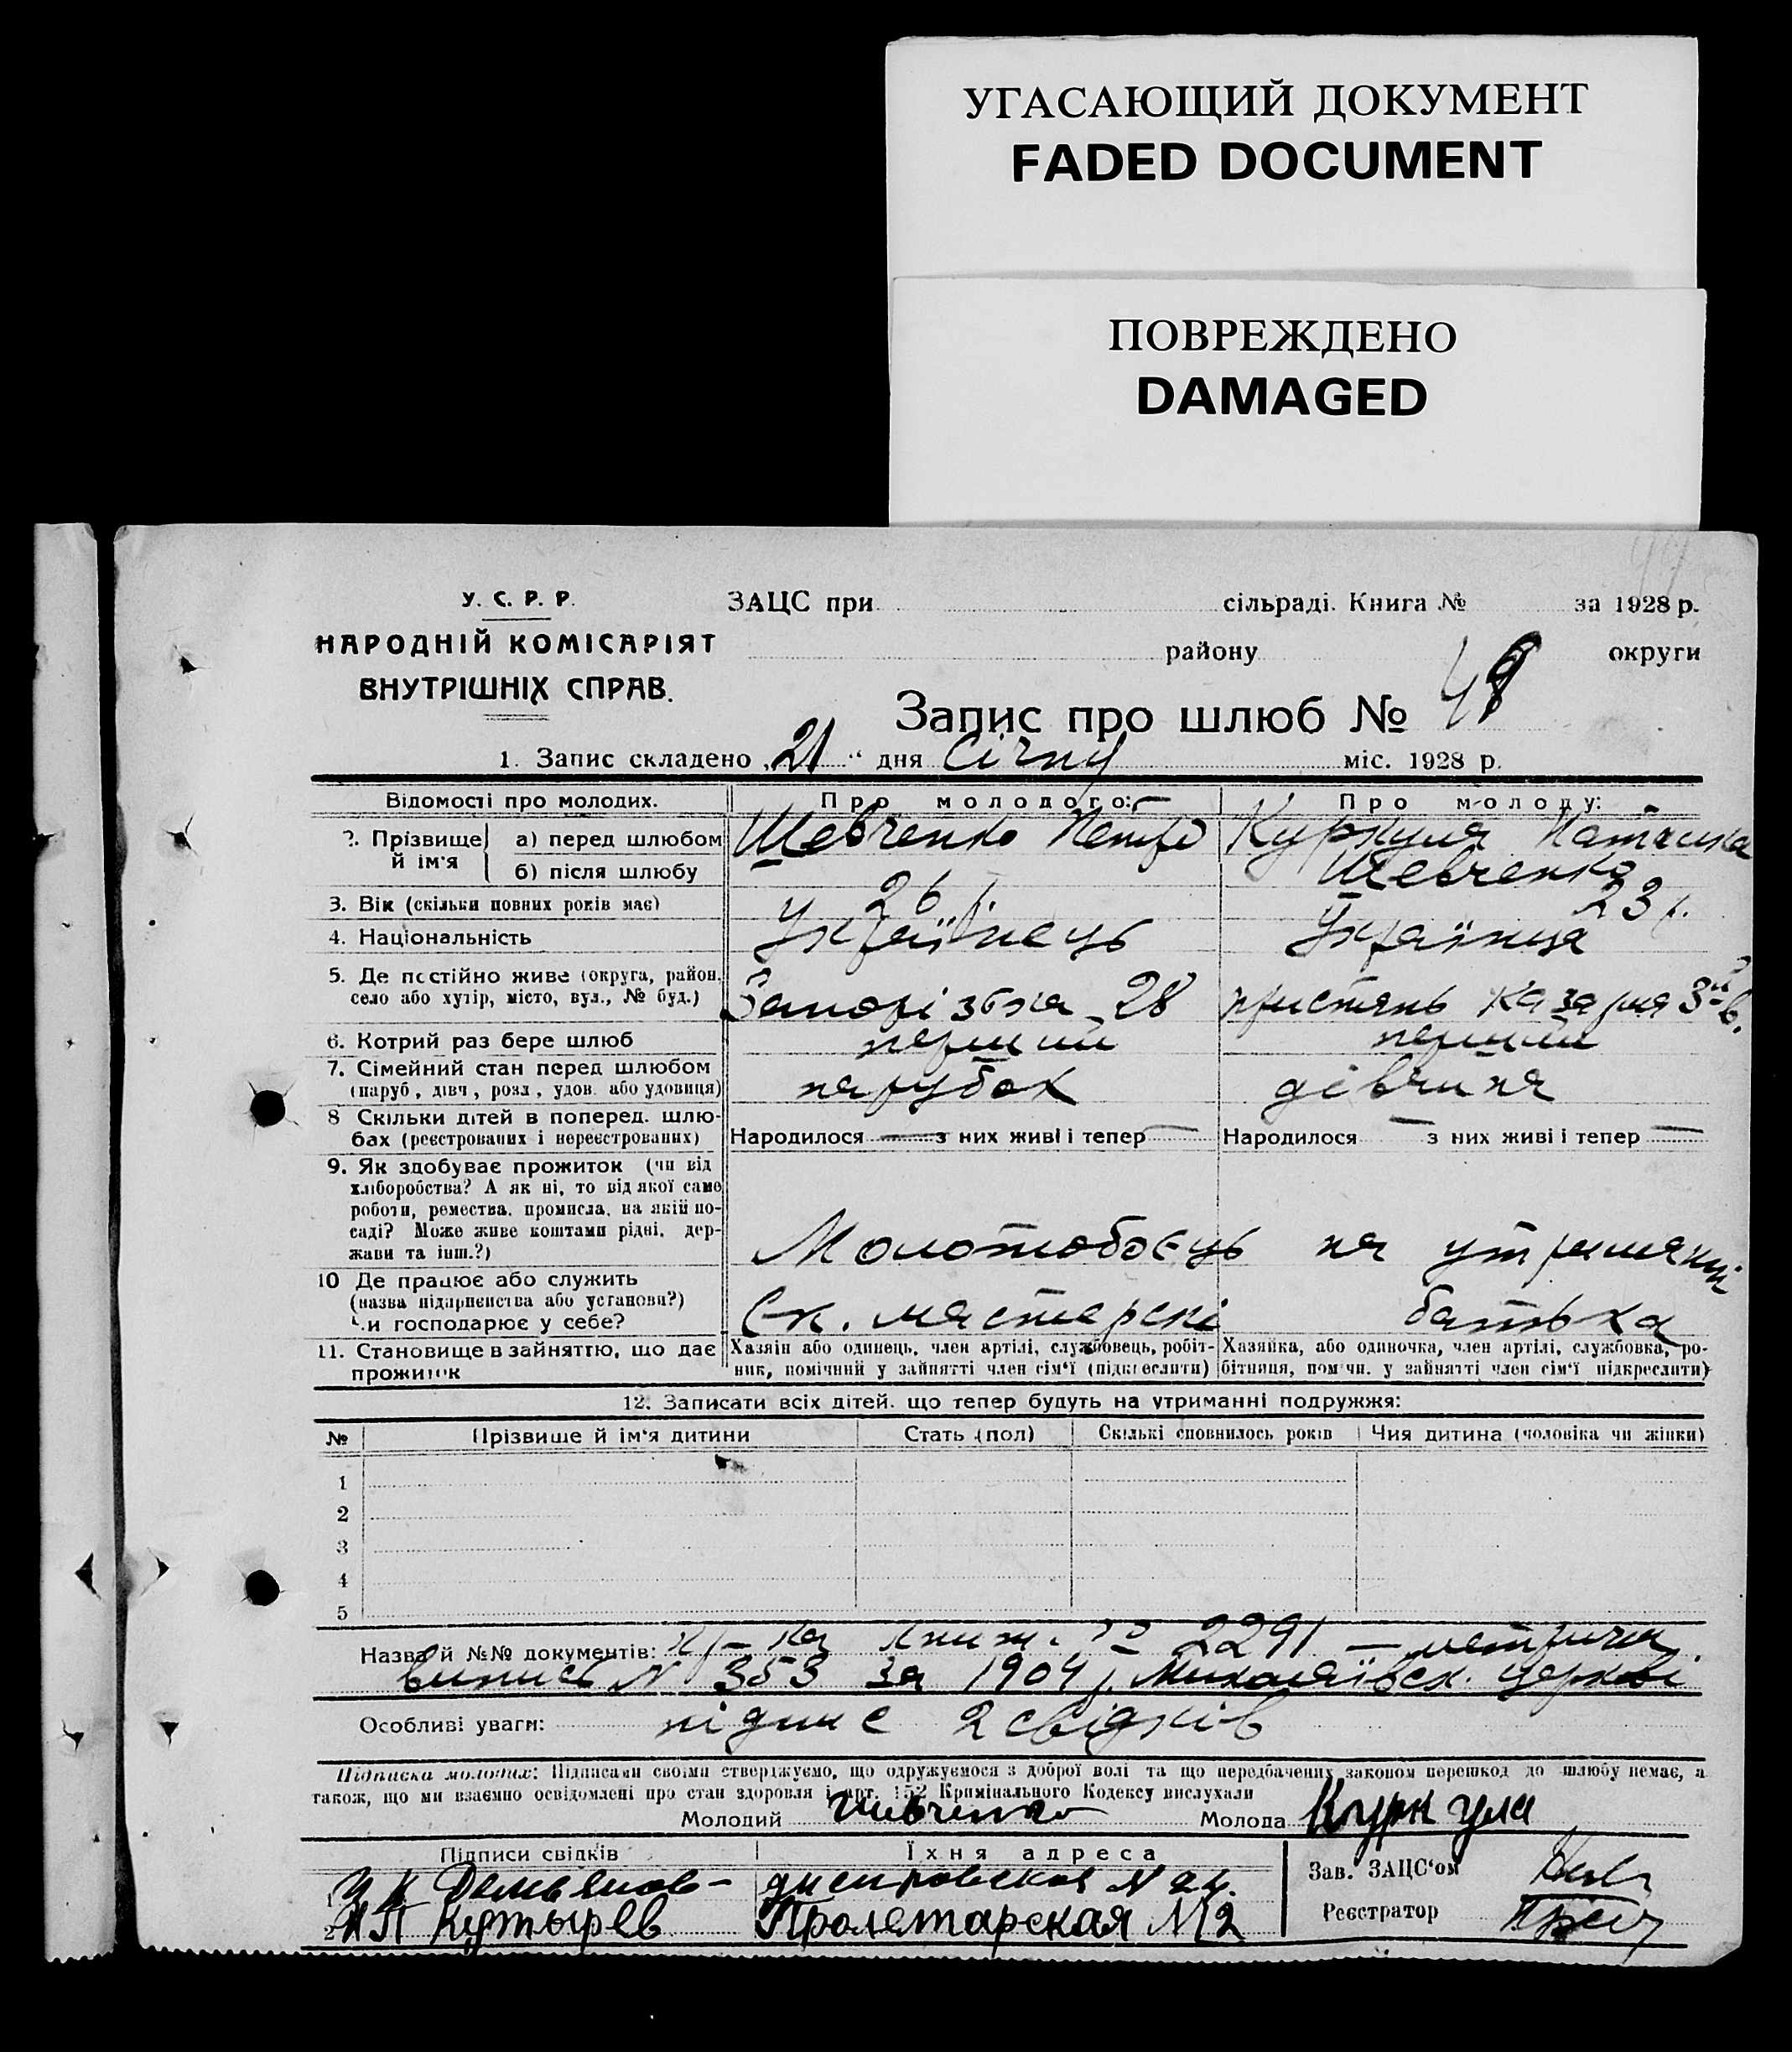 УГАСАЮЩИЙ ДОКУМЕНТ
FADED DOCUMENT
ПОВРЕЖДЕНО
DAMAGED
У. С. Р. Р.
НАРОДНІЙ КОМІСАРІЯТ
ВНУТРІШНІХ СПРАВ.
ЗАЦС при сільраді. Книга № за 1928 р.
району округи
Запис про шлюб № 49
1. Запис складено „21“ дня Січня міс. 1928 р.
Відомості про молодих. Про молодого: Про молоду:
2. Прізвище й ім'я
а) перед шлюбом Шевченко Петро Куркуля Наталка
б) після шлюбу Шевченко
3. Вік (скільки повних років має) 26 р. 23 р.
4. Національність Українець Українка
5. Де постійно живе (округа, район,
село або хутір, місто, вул., № буд.) Запорізька 28 пристань казарма 3
6. Котрий раз бере шлюб перший перший
7. Сімейний стан перед шлюбом
(паруб., дівч., розл., удов. або удовиця) парубок дівчина
8 Скільки дітей в поперед. шлю-
бах (реєстрованих і нереєстрованих) Народилося — з них живі і тепер — Народилося — з них живі і тепер —
9. Як здобуває прожиток (чи від
хліборобства? А як ні, то від якої саме
роботи, ремества, промисла, на якій по-
саді? Може живе коштами рідні, дер-
жави та інш.?) Молотобоєць на утриманні
10 Де працює або служить
(назва підприєнства або установи?)
Чи господарює у себе? Ск. мастерскі батька
11. Становище в зайняттю, що дає
прожиток
Хазяїн або одинець, член артілі, службовець, робіт-
ник, помічний у зайнятті член сім'ї (підкреслити)
Хазяйка, або одиночка, член артілі, службовка, ро-
бітниця, помічн. у зайнятті член сім'ї підкреслити)
12. Записати всіх дітей, що тепер будуть на утриманні подружжя:
№ Прізвище й ім'я дитини Стать (пол) Скількі сповнилось років Чия дитина (чоловіка чи жінки)
1
2
3
4
5
Назва й №№ документів: книж. № 2291 — метрична
випись № 353 за 1904 р. Миколаївск. церкві
Особливі уваги: підпис 2 свідків
Підписка молодих: Підписами своїми стверджуємо, що одружуємося з доброї волі та що передбачених законом перешкод до шлюбу немає, а
також, що ми взаємно освідомлені про стан здоровля і арт. 152 Кримінального Кодексу вислухали
Молодий Шевченко Молода Куркуля
Підписи свідків Їхня адреса
1 Демьянов днепровская № 24.
2 Н П Кутырев Пролетарская № 2
Зав. ЗАЦС'ом
Реєстратор